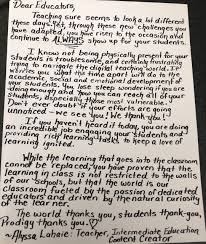 Dear Educators,
Teaching sure seems to look a lot different
these days. Yet, through these new challenges you
have adapted, you have risen to the occasion and
continue to ALWAYS show up for your students.
I know not being physically present for your
students is troublesome, and certainly frustrating
trying to navigate the digital teaching world. If
worries you about the time apart will do to the
academic, social and emotional development of
your students. You lose sleep wondering if you're
doing enough and how you can reach all of your
students, especially those most vulnerable.
Don't ever doubt if your efforts are going
unnoticed - we see you! We thank you!
If you haven't heard it today, you are doing
an incredible job engaging your students and
providing rich learning tasks to keep a love of
learning ignited.
While the learning that goes into the classroom
cannot be replaced, you have proven that the
learning in class is not restricted to the walls
of our schools, but that the world is our
classroom fueled by the passion of dedicated
educators and driven by the natural curiosity
of the learner.
The world thanks you, students thank-you,
Prodigy thanks you.
~ Alyssa Lahaie: Teacher, Intermediate Education
Content Creator